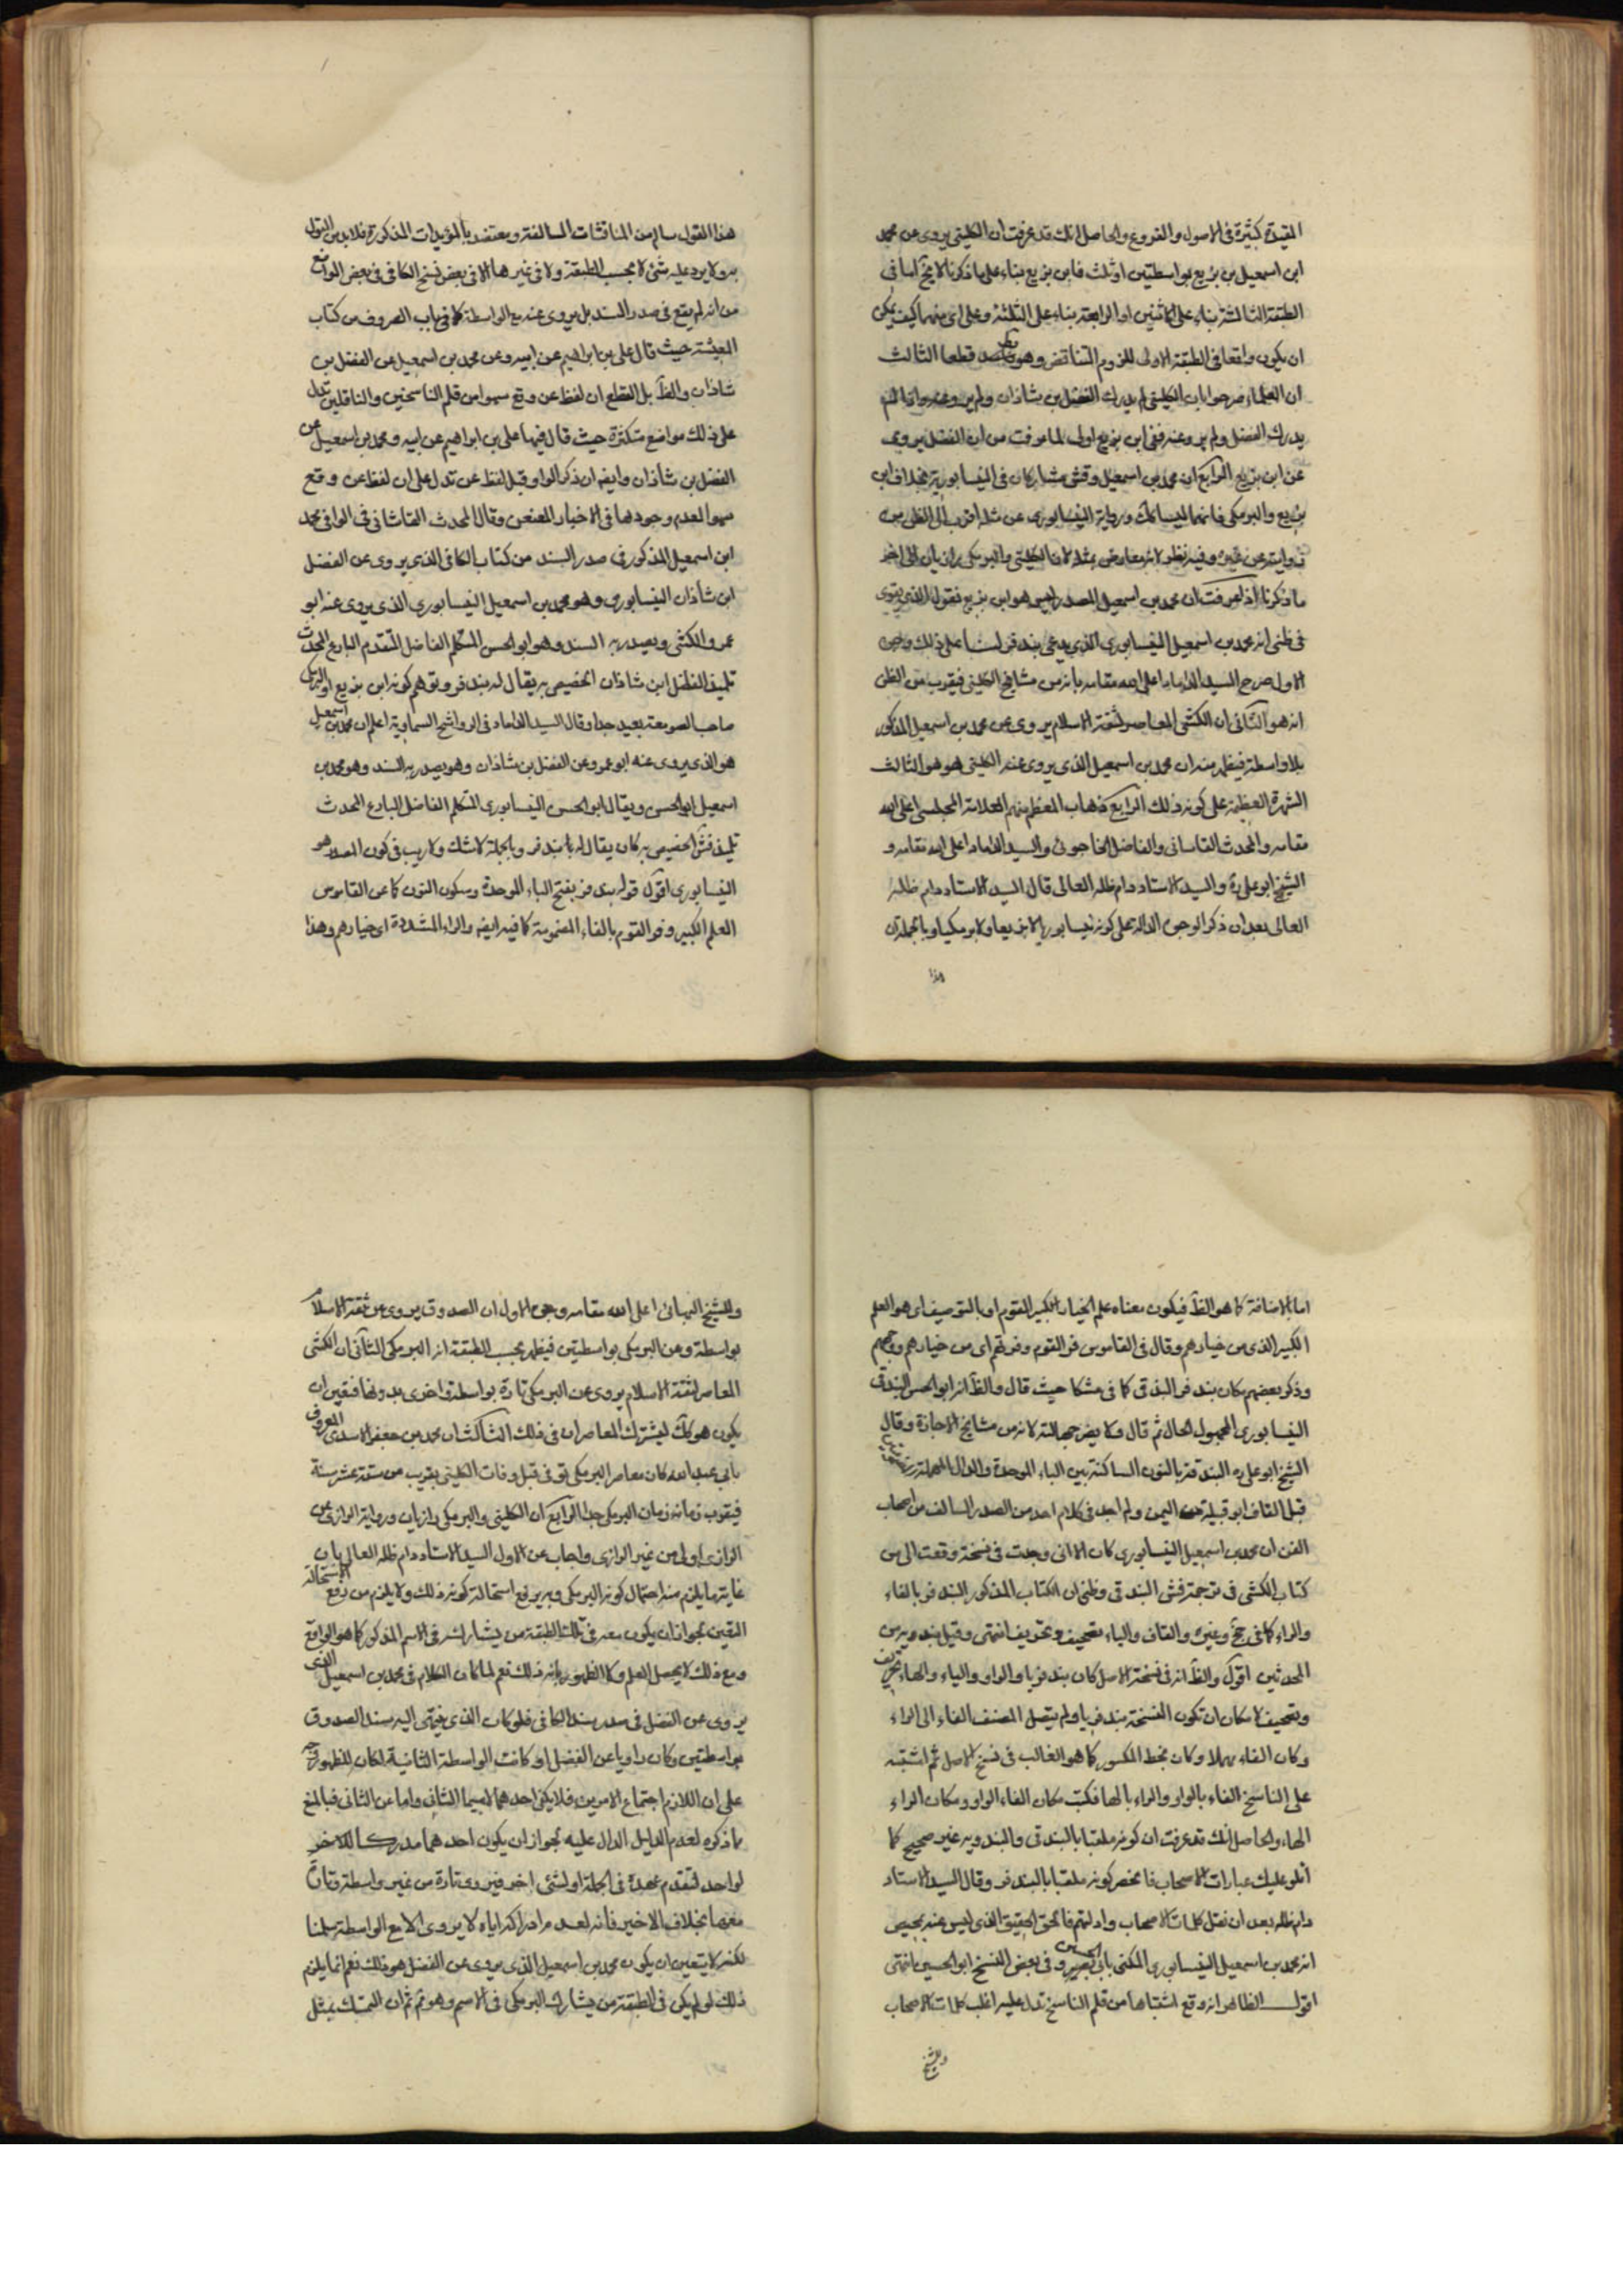 المقيدة كثيرة فى الاصول والفروع والحاصل انك قد عرفت ان الكلينى يروى عن محمد
ابن اسمعيل بن بزيع بواسطتين او ثلث فابن بزيع بناء على ما ذكرنا لا يخ اما فى
الطبقة الثالثة بناء على الاثنين او الرابعة بناء على الثلثة وعلى اى منهما كيف يمكن
ان يكون واقعا فى الطبقة الاولى للزوم التناقض وهو قطعا الثالث
ان العلماء صرحوا بان الكلينى لم يدرك الفضل بن شاذان ولم يرو عنه واذا لم
يدرك الفضل ولم يرو عنه ففى ابن بزيع اولى لما عرفت من ان الفضل يروى
عن ابن بزيع الرابع ان محمد بن اسمعيل وفش مشاركان فى النيسابورية بخلاف ابن
بزيع والبرمكى فانهما ليسا كك ورواية النيسابورى عن مثله اقرب الى الظن من
روايته عن غيره وفيه نظر لانه معارض بمثله لان الكلينى والبرمكى رازيان الى اخر
ما ذكرنا اذا عرفت ان محمد بن اسمعيل المصدر ليس هو ابن بزيع فنقول الذى يقوى
فى ظنى انه محمد بن اسمعيل النيسابورى الذى يدعى بندفر لنا على ذلك وجوه
الاول صرح السيد الداماد اعلى الله مقامه بانه من مشايخ الكلينى فيقرب من الظن
انه هو الثانى ان الكشى المعاصر لثقة الاسلام يروى عن محمد بن اسمعيل المذكور
بلا واسطة فيظهر منه ان محمد بن اسمعيل الذى يروى عنه الكلينى هو هو الثالث
الشهرة العظيمة على كونه ذلك الرابع ذهاب المعظم منهم العلامة المجلسى اعلى الله
مقامه والمحدث القاسانى والفاضل الخاجوئى والسيد الداماد اعلى الله مقامه و
الشيخ ابو على ره والسيد الاستاد دام ظله العالى قال السيد الاستاد دام ظله
العالى بعد ان ذكر الوجوه الدالة على كونه نيسابوريا لا بزيعا ولا برمكيا وبالجملة ان
هذا
هذا القول سالم من المناقشات السالفة ومعتضد بالمؤيدات المذكورة فلا بد من القول
به ولا يرد عليه شئ لا بحسب الطبقة ولا فى غيرها الا فى بعض نسخ الكافى فى بعض المواضع
من انه لم يقع فى صدر السند بل يروى عنه مع الواسطة كما فى باب المعروف من كتاب
المعيشة حيث قال على بن ابراهيم عن ابيه وعن محمد بن اسمعيل عن الفضل بن
شاذان والظ بل القطع ان لفظ عن وقع سهوا من قلم الناسخين والناقلين تدل
على ذلك مواضع متكثرة حيث قال فيها على بن ابراهيم عن ابيه ومحمد بن اسمعيل عن
الفضل بن شاذان وايض ان ذكر الواو قبل لفظ عن تدل على ان لفظ عن وقع
سهوا لعدم وجودها فى الاخبار المعنعن وقال المحدث القاشانى فى الوافى محمد
ابن اسمعيل المذكور فى صدر السند من كتاب الكافى الذى يروى عن الفضل
ابن شاذان النيسابورى وهو محمد بن اسمعيل النيسابورى الذى يروى عنه ابو
عمرو الكشى ويصدر به السند وهو ابو الحسن المتكلم الفاضل المتقدم البارع المحدث
تلميذ الفضل ابن شاذان الخصيص به يقال له بندفر وتوهم كونه ابن بزيع او البرمكى
صاحب الصومعة بعيد جدا وقال السيد الداماد فى الرواشح السماوية اعلم ان محمد بن اسمعيل
هو الذى يروى عنه ابو عمرو عن الفضل بن شاذان وهو يصدر به السند وهو محمد بن
اسمعيل ابو الحسن ويقال ابو الحسن النيسابورى المتكلم الفاضل البارع المحدث
تلميذ فش الخصيص به كان يقال له بابندفر وبالجملة لا شك ولا ريب فى كون المصدر هو
النيسابورى اقول قوله بندفر بفتح الباء الموحدة وسكون النون كما عن القاموس
العلم الكبير وفر القوم بالفاء المضمومة كما فيه ايض والراء المشددة اى خيارهم وهذا
اما بالاضافة كما هو الظ فيكون معناه علم الخيار الكبير القوم او بالتوصيف اى هو العلم
الكبير الذى من خيارهم وقال فى القاموس فر القوم وفرتهم اى من خيارهم ووجههم
وذكر بعضهم مكان بندفر البندقى كما فى مشكا حيث قال والظ انه ابو الحسن البندقى
النيسابورى المجهول الحال ثم قال ولا يضر جهالته لانه من مشايخ الاجازة وقال
الشيخ ابو على ره البندقى بالنون الساكنة بين الباء الموحدة والدال المهملة
قبل القاف ابو قبيلة من اليمن ولم اجد فى كلام احد من الصدر السالف من اصحاب
الفن ان محمد بن اسمعيل النيسابورى كان الا انى وجدت فى نسخة وقعت الى من
كتاب الكشى فى ترجمة فش البندقى وظنى ان الكتاب المذكور البندفر بالفاء
والراء كما فى جخ وغيره والقاف والياء تصحيف وتحريف انتهى وقيل بندويه من
المحدثين اقول والظ انه فى نسخة الاصل كان بندفر يا والواو والياء والهاء تحريف
وتصحيف لامكان ان تكون النسخة بندفر يا ولم يتصل المصنف الفاء الى الراء
وكان الفاء مهملا وكان بخط المكسور كما هو الغالب فى نسخ الاصل ثم اشتبه
على الناسخ الفاء بالواو والراء بالها فكتب مكان الفاء الواو ومكان الراء
الهاء والحاصل انك قد عرفت ان كونه ملقبا بالبندقى والبندويه غير صحيح كما
اتلو عليك عبارات الاصحاب فانحصر كونه ملقبا بالبندفر وقال السيد الاستاد
دام ظله بعد ان نقل كلمات الاصحاب وادلتهم فالحق الحقيق الذى ليس عنه محيص
انه محمد بن اسمعيل النيسابورى المكنى بابى الحسن وفى بعض النسخ ابو الحسين انتهى
اقول الظاهر انه وقع اشتباها من قلم الناسخ تدل عليه اغلب كلمات الاصحاب
وللشيخ
وللشيخ البهائى اعلى الله مقامه وجوه الاول ان الصدوق يروى عن ثقة الاسلام
بواسطة وعن البرمكى بواسطتين فيظهر بحسب الطبقة انه البرمكى الثانى ان الكشى
المعاصر لثقة الاسلام يروى عن البرمكى تارة بواسطة واخرى بدونها فيقين ان
يكون هو كك ليشترك المعاصران فى ذلك الثالث ان محمد بن جعفر الاسدى المعروف
بابى عبد الله كان معاصر البرمكى توفى قبل وفات الكلينى بقريب من ستة عشر سنة
فيقرب زمانه زمان البرمكى جدا الرابع ان الكلينى والبرمكى رازيان ورواية الرازى عن
الرازى اولى من غير الرازى واجاب عن الاول السيد الاستاد دام ظله العالى بان
غاية ما يلزم منه احتمال كونه البرمكى وبه يرفع استحالة كونه ذلك ولا يلزم من رفع الاستحالة
اليقين لجواز ان يكون معه فى تلك الطبقة من يشاركه فى الاسم المذكور كما هو الواقع
ومع ذلك لا يحصل العلم ولا الظهور بانه ذلك نعم لما كان الكلام فى محمد بن اسمعيل الذى
يروى عن الفضل فى صدر سند الكافى فلو كان الذى ينتهى اليه سند الصدوق
بواسطتين وكان راويا عن الفضل او كانت الواسطة الثانية لكان للظهور وجه
على ان اللازم اجتماع الامرين فلا يكفى احدهما لا سيما الثانى واما عن الثانى فبالمنع
ما ذكره لعدم الدليل الدال عليه لجواز ان يكون احدهما مدركا للاخر
لواحد لتقدم عهده فى الجملة او لشئ اخر فيروى تارة من غير واسطة وتارة
معها بخلاف الاخير فانه لعدم ادراكه اياه لا يروى الا مع الواسطة سلمنا
لكنه لا يتعين ان يكون محمد بن اسمعيل الذى يروى عن الفضل هو ذلك نعم انما يلزم
ذلك لو لم يكن فى الطبقة من يشارك البرمكى فى الاسم وهو ثم ثم ان التمسك بمثل